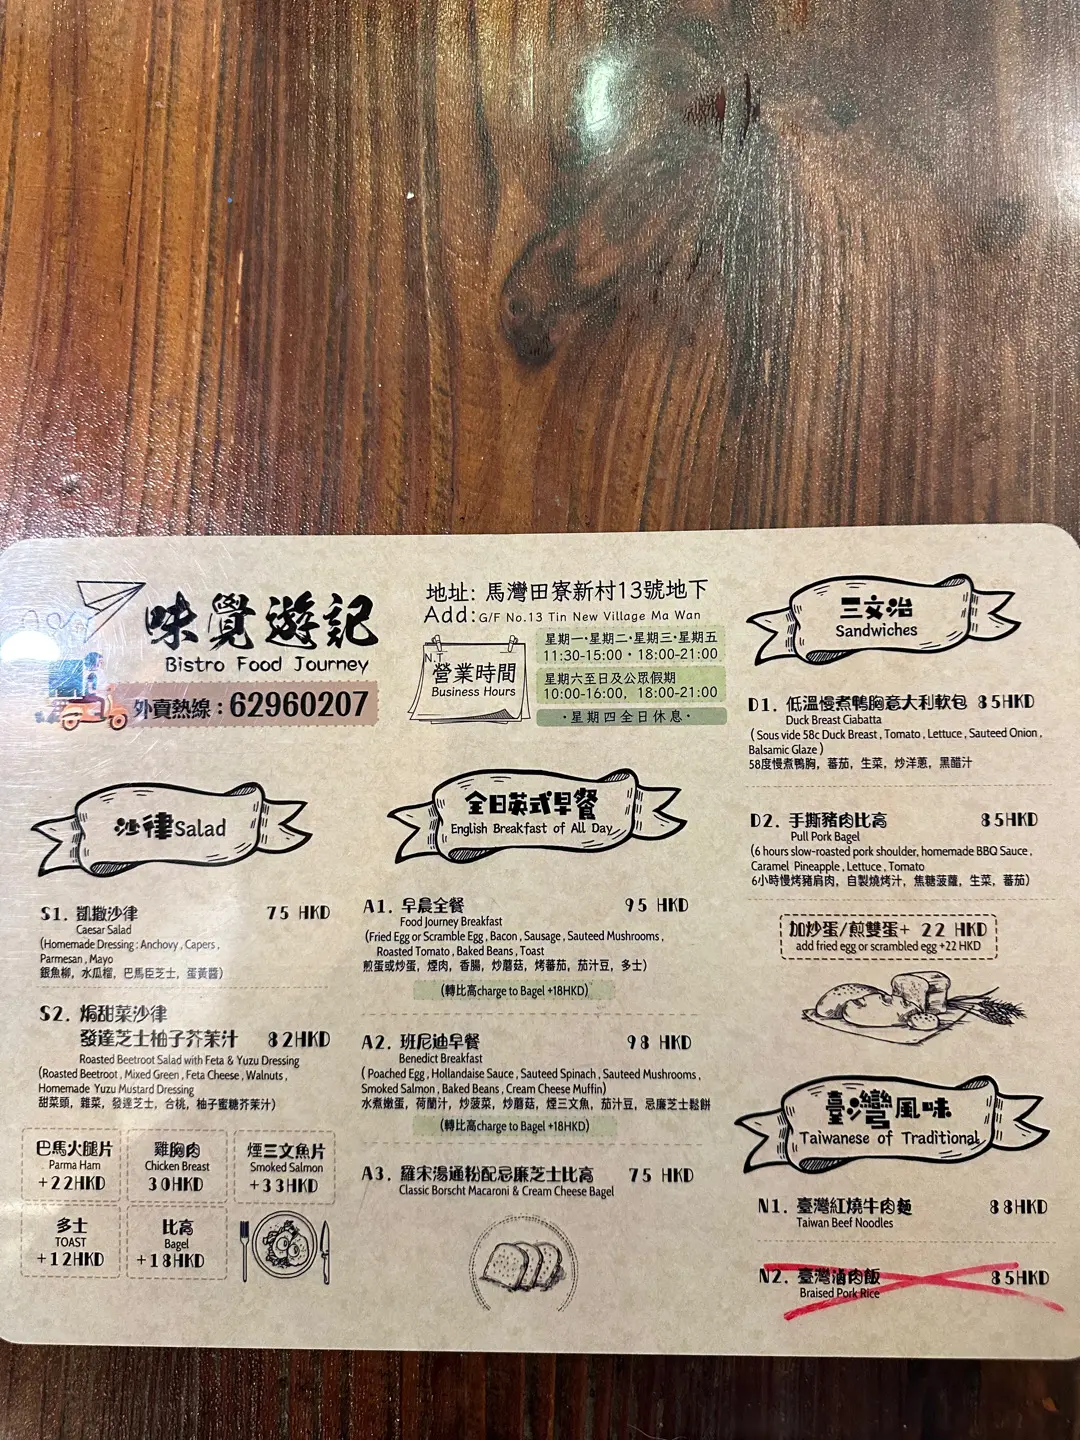 味覺遊記
Bistro Food Journey
外賣熱線：62960207
地址: 馬灣田寮新村13號地下
Add:G/F No.13 Tin New Village Ma Wan
N.T
營業時間
Business Hours
星期一·星期二·星期三·星期五
11:30-15:00·18:00-21:00
星期六至日及公眾假期
10:00-16:00, 18:00-21:00
·星期四全日休息·
沙律Salad
S1. 凱撒沙律 75 HKD
Caesar Salad
(Homemade Dressing : Anchovy , Capers ,
Parmesan , Mayo
銀魚柳，水瓜榴，巴馬臣芝士，蛋黃醬)
S2. 焗甜菜沙律
發達芝士柚子芥茉汁 82HKD
Roasted Beetroot Salad with Feta & Yuzu Dressing
(Roasted Beetroot , Mixed Green , Feta Cheese , Walnuts ,
Homemade Yuzu Mustard Dressing
甜菜頭，雜菜，發達芝士，合桃，柚子蜜糖芥茉汁)
巴馬火腿片
Parma Ham
+22HKD
雞胸肉
Chicken Breast
30HKD
煙三文魚片
Smoked Salmon
+33HKD
多士
TOAST
+12HKD
比高
Bagel
+18HKD
全日英式早餐
English Breakfast of All Day
A1. 早晨全餐 95 HKD
Food Journey Breakfast
(Fried Egg or Scramble Egg , Bacon , Sausage , Sauteed Mushrooms ,
Roasted Tomato , Baked Beans , Toast
煎蛋或炒蛋，煙肉，香腸，炒蘑菇，烤蕃茄，茄汁豆，多士)
(轉比高charge to Bagel +18HKD)
A2. 班尼迪早餐 98 HKD
Benedict Breakfast
( Poached Egg , Hollandaise Sauce , Sauteed Spinach , Sauteed Mushrooms ,
Smoked Salmon , Baked Beans , Cream Cheese Muffin)
水煮嫩蛋，荷蘭汁，炒菠菜，炒蘑菇，煙三文魚，茄汁豆，忌廉芝士鬆餅
(轉比高charge to Bagel +18HKD)
A3. 羅宋湯通粉配忌廉芝士比高 75 HKD
Classic Borscht Macaroni & Cream Cheese Bagel
三文治
Sandwiches
D1. 低溫慢煮鴨胸意大利軟包 85HKD
Duck Breast Ciabatta
( Sous vide 58c Duck Breast , Tomato , Lettuce , Sauteed Onion ,
Balsamic Glaze )
58度慢煮鴨胸，蕃茄，生菜，炒洋蔥，黑醋汁
D2. 手撕豬肉比高 85HKD
Pull Pork Bagel
(6 hours slow-roasted pork shoulder, homemade BBQ Sauce ,
Caramel Pineapple , Lettuce , Tomato
6小時慢烤豬肩肉，自製燒烤汁，焦糖菠蘿，生菜，蕃茄)
加炒蛋/煎雙蛋+ 22 HKD
add fried egg or scrambled egg +22 HKD
臺灣風味
Taiwanese of Traditional
N1. 臺灣紅燒牛肉麵 88HKD
Taiwan Beef Noodles
N2. 臺灣滷肉飯 85HKD
Braised Pork Rice